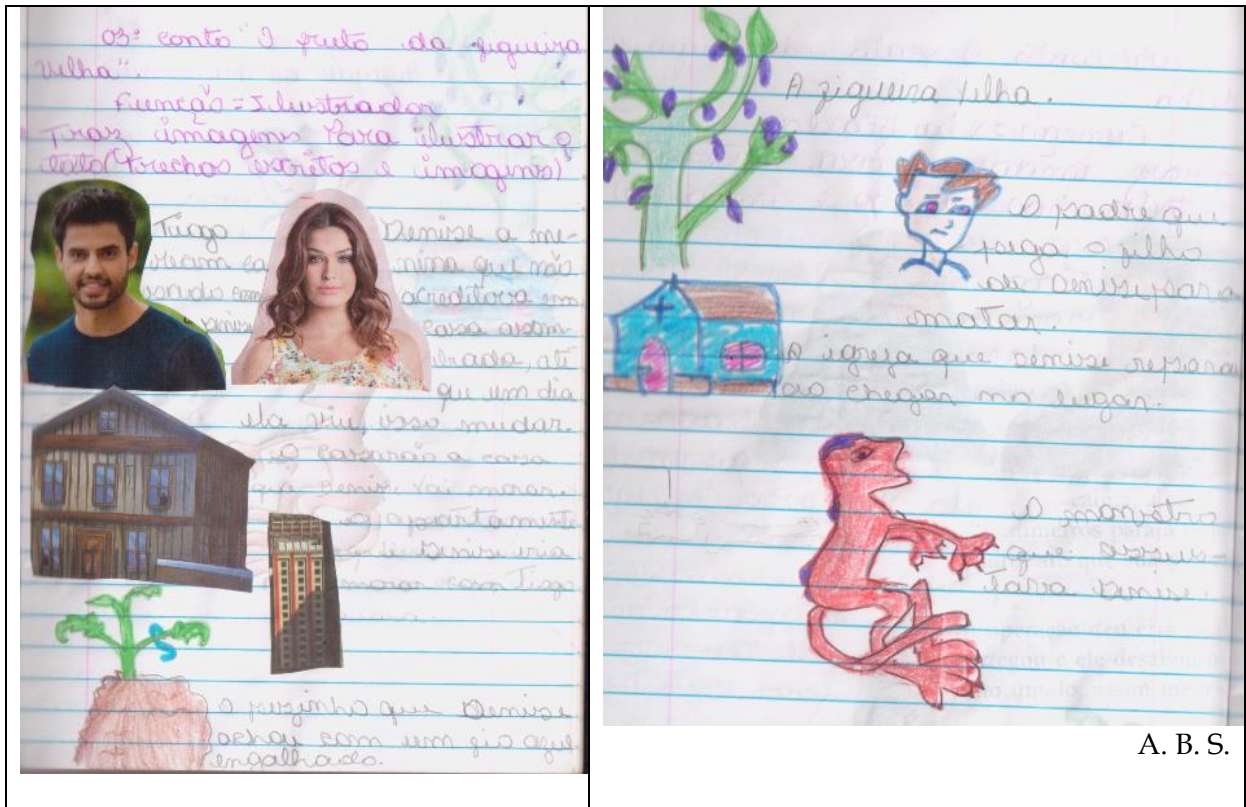 03º conto "O fruto da figueira
velha".
Função = Ilustrador
Traz imagens Para ilustrar o
texto (trechos escritos e imagens)
Tiago
Denise a me-
nina que não
acreditava em
casa assom-
brada, até
que um dia
ela viu isso mudar.
O casarão a casa
que Denise vai morar.
O apartamento
Denise iria
morar com Tiago
O pezinho que Denise
achou com um fio azul
engalhado.
A figueira velha.
O padre que
pega o filho
de Denise para
matar.
A igreja que denise repara
ao chegar no lugar.
O monstro
que assus-
tava Denise.
A. B. S.